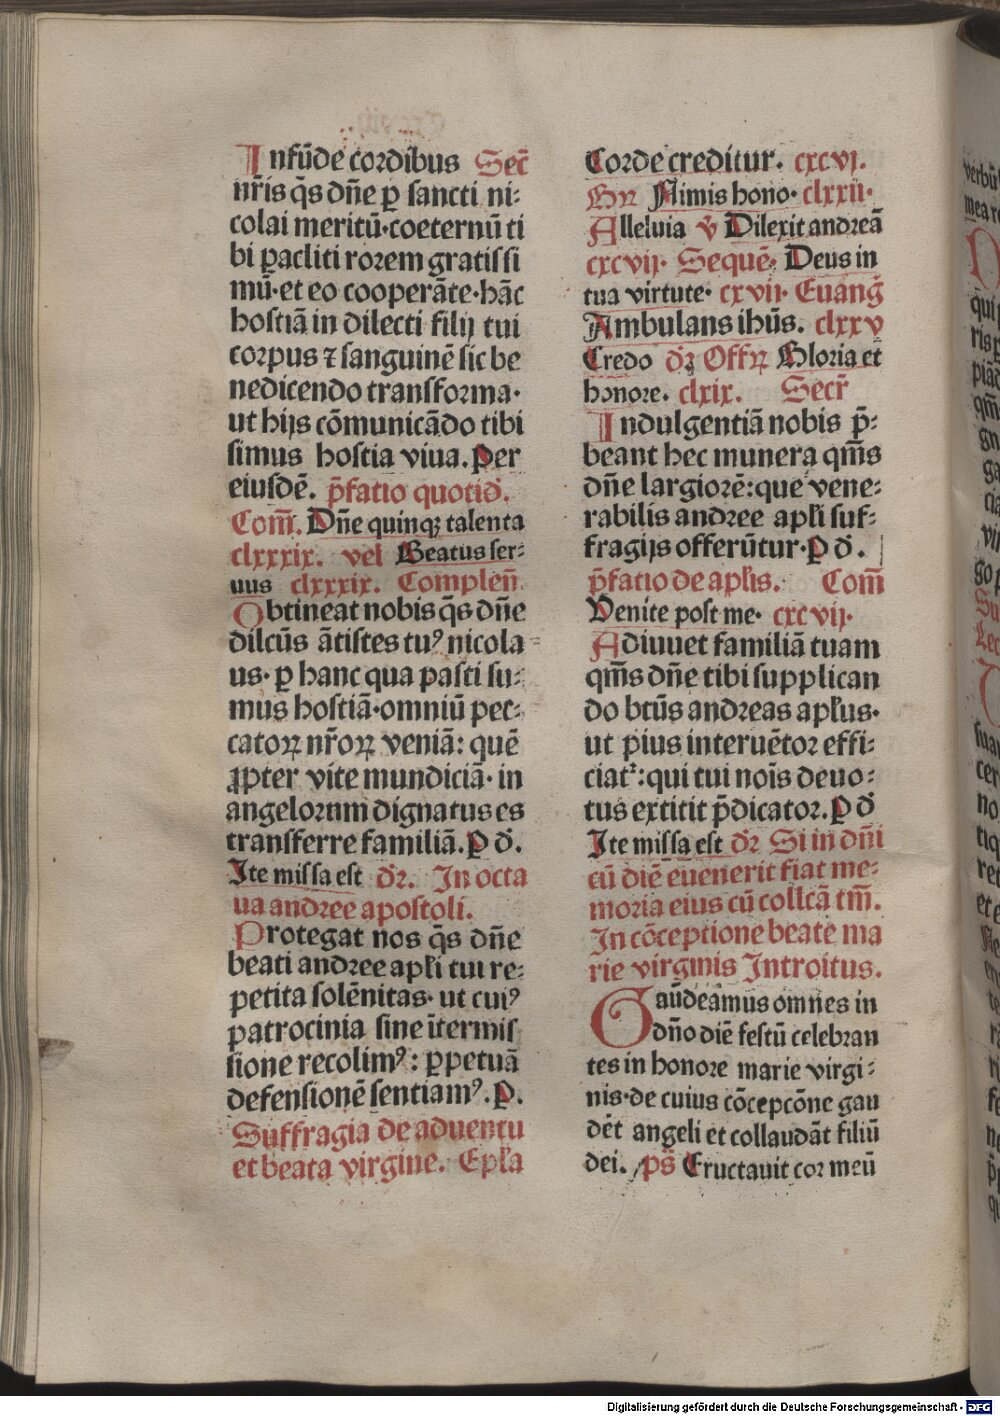 Infūde cordibus Sec̄
nr̄is q̄s dn̄e ꝑ sancti ni-
colai meritū·coeternū ti
bi ꝑacliti rorem gratissi
mū·et eo cooperāte·hāc
hostiā in dilecti filij tui
corpus ⁊ sanguinē sic be
nedicendo transforma·
ut hijs cōmunicādo tibi
simus hostia viua. Per
eiusdē. p̄fatio quotid̄.
Com̄. Dn̄e quinqꝫ talenta
clxxxix. vel Beatus ser-
uus clxxxix. Complen̄
Obtineat nobis q̄s dn̄e
dilcūs ātistes tuꝰ nicola
us· ꝑ hanc qua pasti su-
mus hostiā·omniū pec-
catoꝝ nr̄oꝝ veniā: quē
ꝓpter vite mundiciā· in
angelorum dignatus es
transferre familiā. P d̄.
Ite missa est d̄r. In octa
ua andree apostoli.
Protegat nos q̄s dn̄e
beati andree apl̄i tui re-
petita solēnitas· ut cuiꝰ
patrocinia sine ītermis
sione recolimꝰ: ꝑpetuā
defensionē sentiamꝰ. P.
Suffragia de aduentu
et beata virgine. Epl̄a
Corde creditur. cxcvj.
Gꝛ Nimis hono· clxxii·
Alleluia v̄ Dilexit andreā
cxcvij. Sequē. Deus in
tua virtute· cxvij. Euanḡ
Ambulans ihūs. clxxv
Credo d̄r Offꝝ Gloria et
honore. clxix. Secr̄
Indulgentiā nobis p̄-
beant hec munera qm̄s
dn̄e largiorē: que vene-
rabilis andree apl̄i suf-
fragijs offerūtur· P d̄.
p̄fatio de apl̄is. Com̄
Venite post me· cxcvij.
Adiuuet familiā tuam
qm̄s dn̄e tibi supplican
do btūs andreas apl̄us·
ut pius interuētor effi-
ciat᷑: qui tui nois̄ deuo-
tus extitit p̄dicator. P d̄
Ite missa est d̄r Si in dn̄i
cū diē euenerit fiat me-
moria eius cū collcā tm̄.
In cōceptione beate ma
rie virginis Introitus.
Gaūdeamus omnes in
dn̄o diē festū celebran
tes in honore marie virgi-
nis·de cuius cōcepcōne gau
dēt angeli et collaudāt filiū
dei. ps̄ Eructauit cor meū
Digitalisierung gefördert durch die Deutsche Forschungsgemeinschaft - DFG